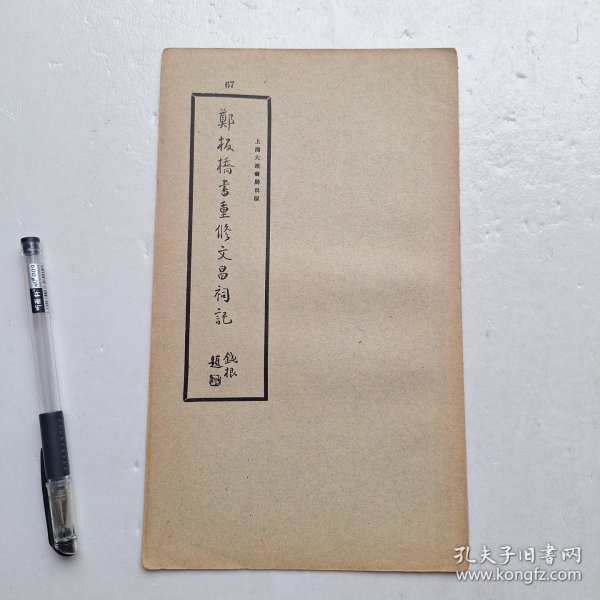 67
上海大眾書局出版
鄭板橋書重修文昌祠記
鈍根
題
孔夫子旧书网
www.kongfz.com